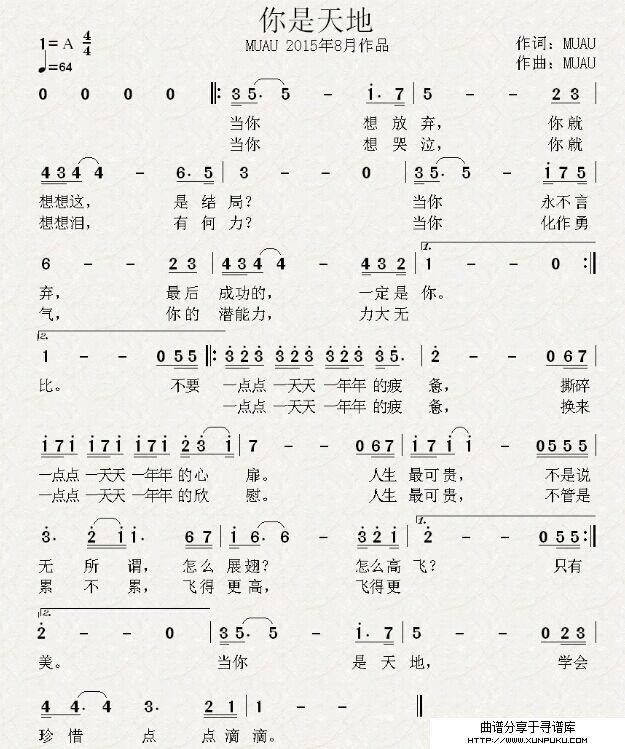 你是天地
MUAU 2015年8月作品
1=A 4/4
♩=64
作词：MUAU
作曲：MUAU
0 0 0 0 ‖: 3 5. 5 - i. 7 | 5 - - 2 3 |
当你 想 放 弃， 你 就
当你 想 哭 泣， 你 就
4 3 4 4 - 6. 5 | 3 - - 0 | 3 5. 5 - i 7 5 |
想想这， 是 结 局？ 当你 永不言
想想泪， 有 何 力？ 当你 化作勇
1.
6 - - 2 3 | 4 3 4 4 - 4 3 2 | 1 - - 0 :‖
弃， 最后 成功的， 一定是 你。
气， 你的 潜能力， 力大无
2.
1 - - 0 5 5 ‖: 3 2 3 3 2 3 3 2 3 3 5. | 2 - - 0 6 7 |
比。 不要 一点点 一天天 一年年 的疲 惫， 撕碎
一点点 一天天 一年年 的疲 惫， 换来
i 7 i i 7 i i 7 i 2 3 i | 7 - - 0 6 7 | i 7 i i - 0 5 5 5 |
一点点 一天天 一年年 的心 扉。 人生 最可贵， 不是说
一点点 一天天 一年年 的欣 慰。 人生 最可贵， 不管是
1.
3. 2 i i. 6 7 | i 6. 6 - 3 2 i | 2 - - 0 5 5 :‖
无 所 谓， 怎么 展翅？ 怎么高 飞？ 只有
累 不 累， 飞得 更高， 飞得更
2.
2 - - 0 | 3 5. 5 - i. 7 | 5 - - 0 2 3 |
美。 当你 是 天 地， 学会
4 4. 3. 2 1 | 1 - - ‖
珍 惜 点 点 滴 滴。
曲谱分享于寻谱库
HTTP://WWW.XUNPUKU.COM